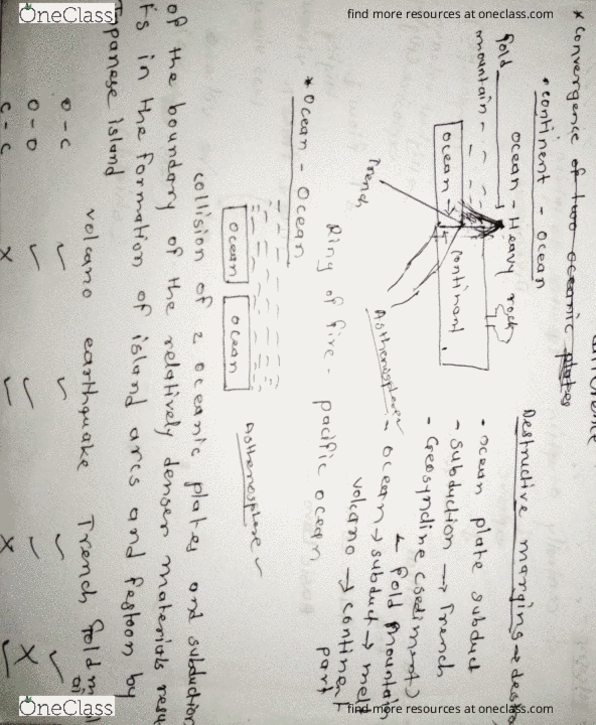 OneClass
find more resources at oneclass.com
* Convergence of two oceanic plates
• continent - ocean
Destructive margins →
ocean - Heavy rock
Fold
mountain
• ocean plate subduct
- subduction → Trench
- Geosyncline (sediment)
↳ Fold mountain
ocean →
continent
Trench
Asthenosphere
ocean → subduct → melt
volcano → continent
part
Ring of fire - pacific ocean
* Ocean - Ocean
ocean
ocean
Asthenosphere
collision of 2 oceanic plates and subduction
of the boundary of the relatively denser materials
in the formation of island arcs and festoon by
Japanese island
volcano earthquake Trench Fold m
o - c ✓ ✓ ✓ ✓
o - o ✓ ✓ ✓ x
c - c x ✓ x ✓
OneClass
find more resources at oneclass.com